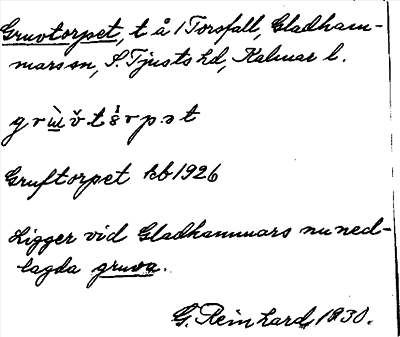 Gruvtorpet, t å 1 Torsfall, Gladham-
mars sn, S. Tjusts hd, Kalmar l.
grùv̌tȯ̀rpət
Gruftorpet kb 1926
Ligger vid Gladhammars nu ned-
lagda gruva.
G. Reinhard, 1930.